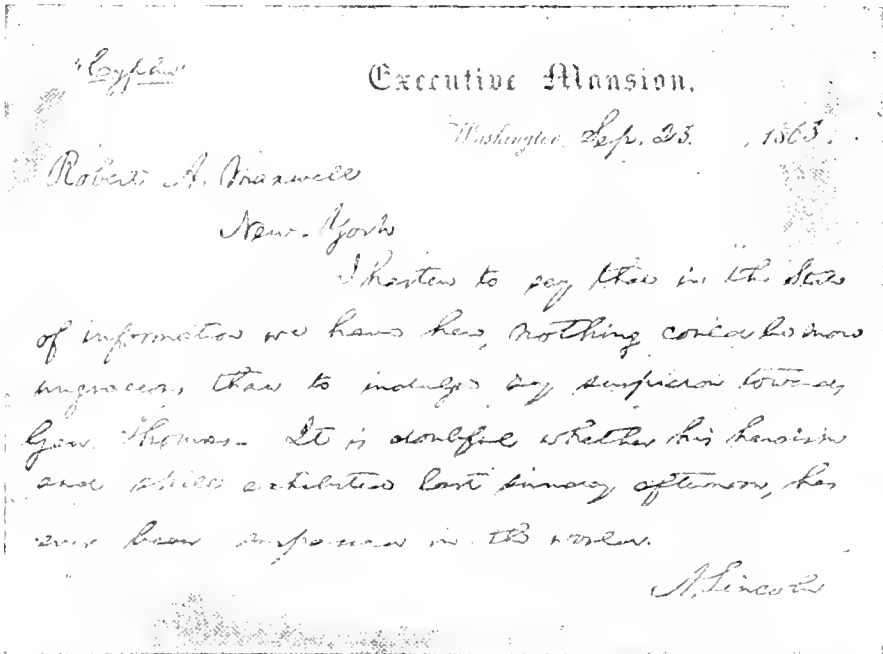 "Cypher"
Executive Mansion,
Washington, Sep. 23. , 1863.
Robert A. Maxwell
New-York
I hasten to say that in the State
of information we have here, nothing could be more
ungracious than to indulge any suspicion towards
Gen. Thomas. It is doubtful whether his heroism
and skill exhibited last sunday afternoon, has
ever been surpassed in the world.
A. Lincoln